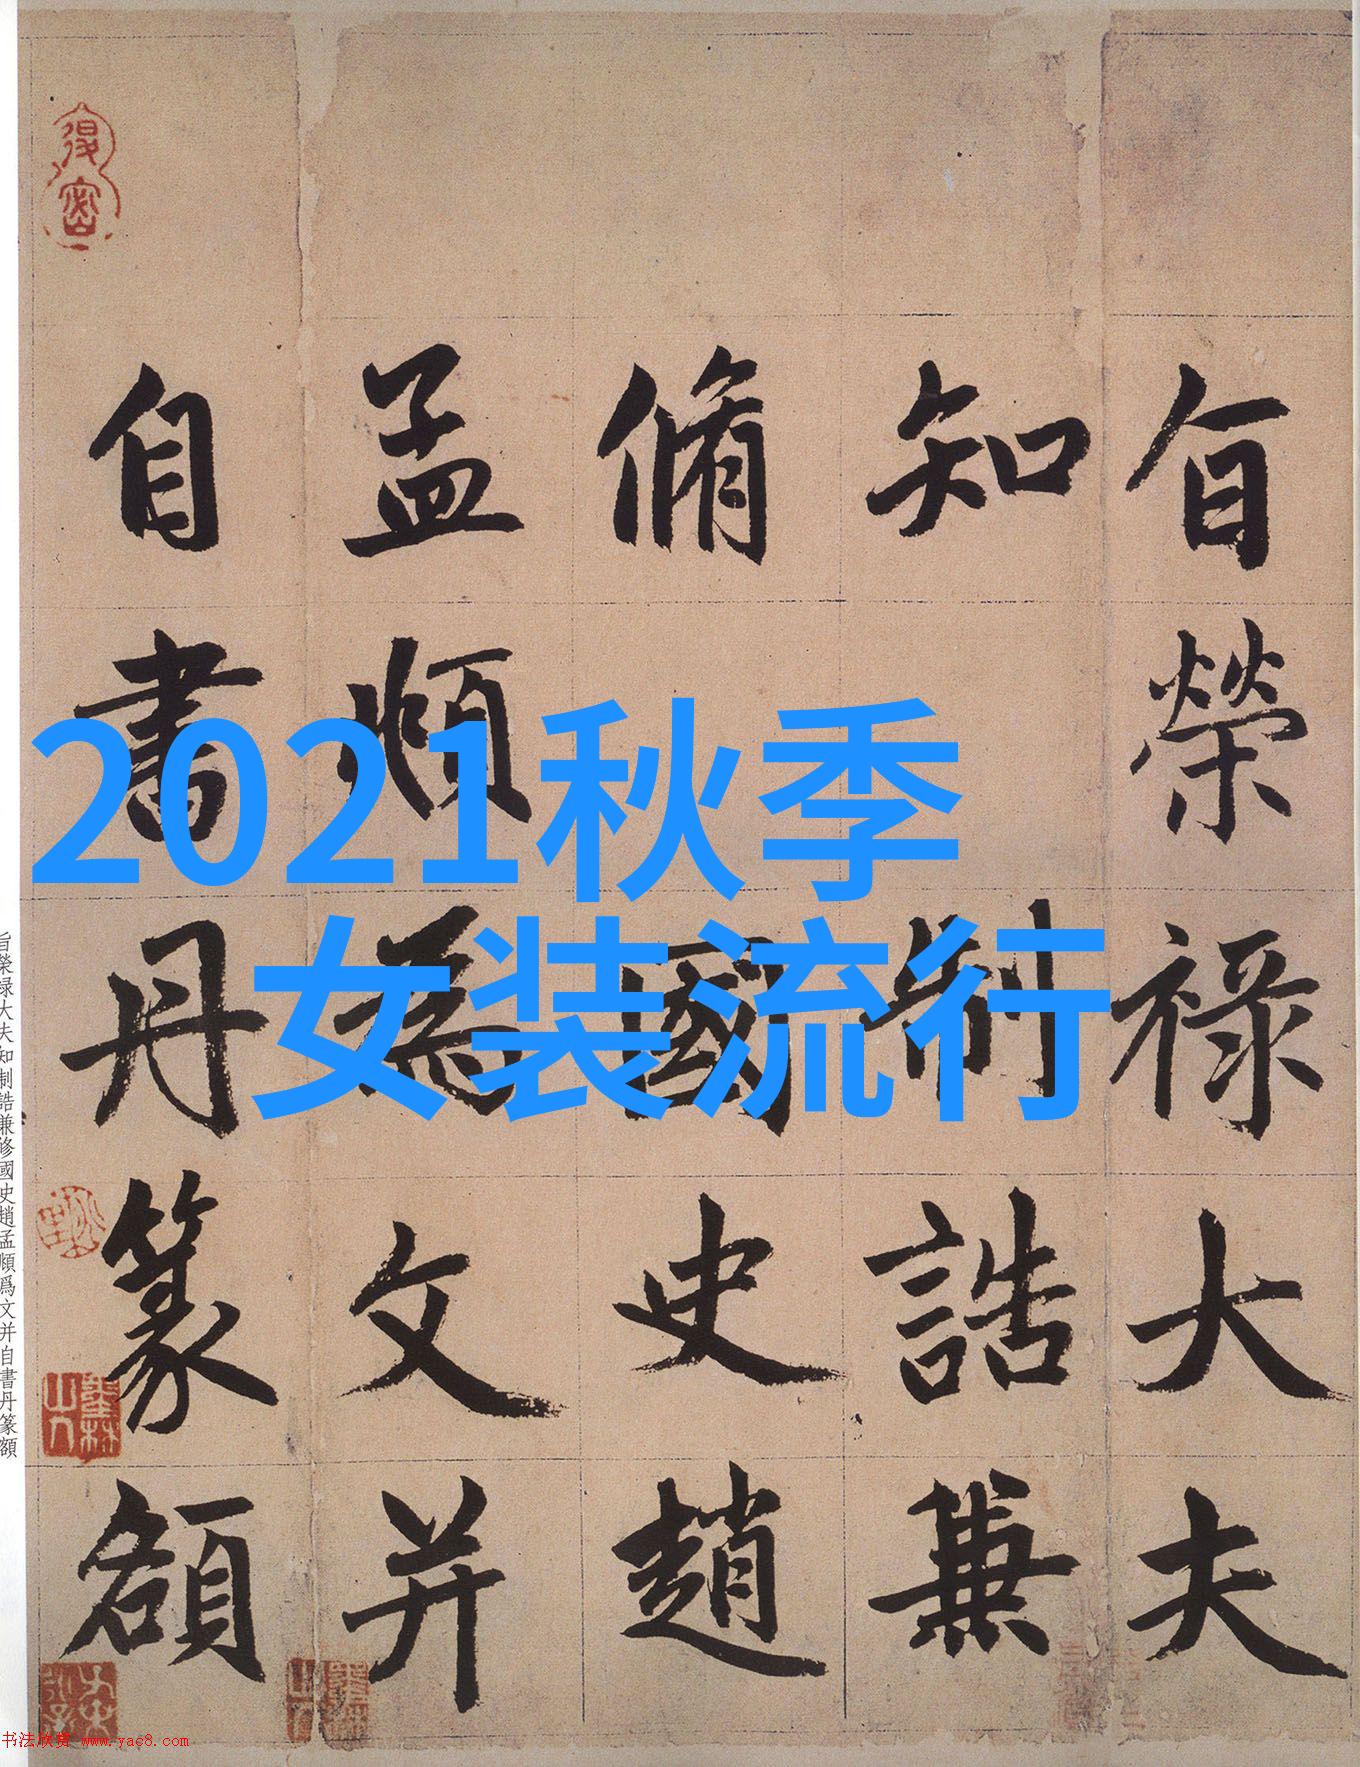 2021秋季
女装流行
旨榮祿大夫
知制誥兼
脩國史趙
孟頫為文并
自書丹篆額
旨榮禄大夫知制誥兼修國史趙孟頫爲文并自書丹篆額
墨林山人
书法欣赏 www.yac8.com